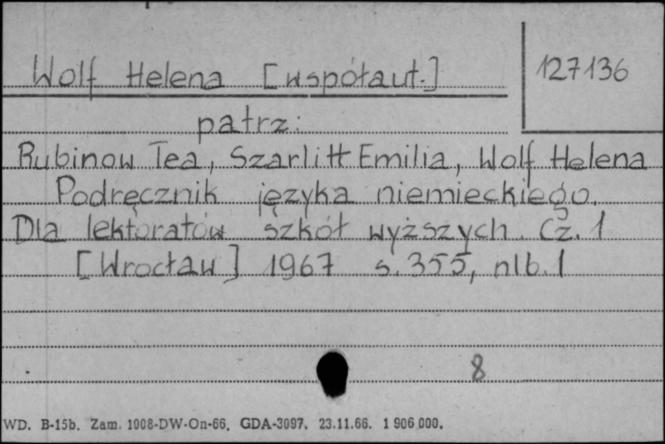 Wolf Helena [współaut.]
127136
patrz:
Rubinow Tea, Szarlitt Emilia, Wolf Helena
Podręcznik języka niemieckiego.
Dla lektoratów szkół wyższych. Cz. 1
[Wrocław] 1967 s. 355, nlb. 1
8
WD. B-15b. Zam. 1008-DW-On-66. GDA-3097. 23.11.66. 1 906 000.